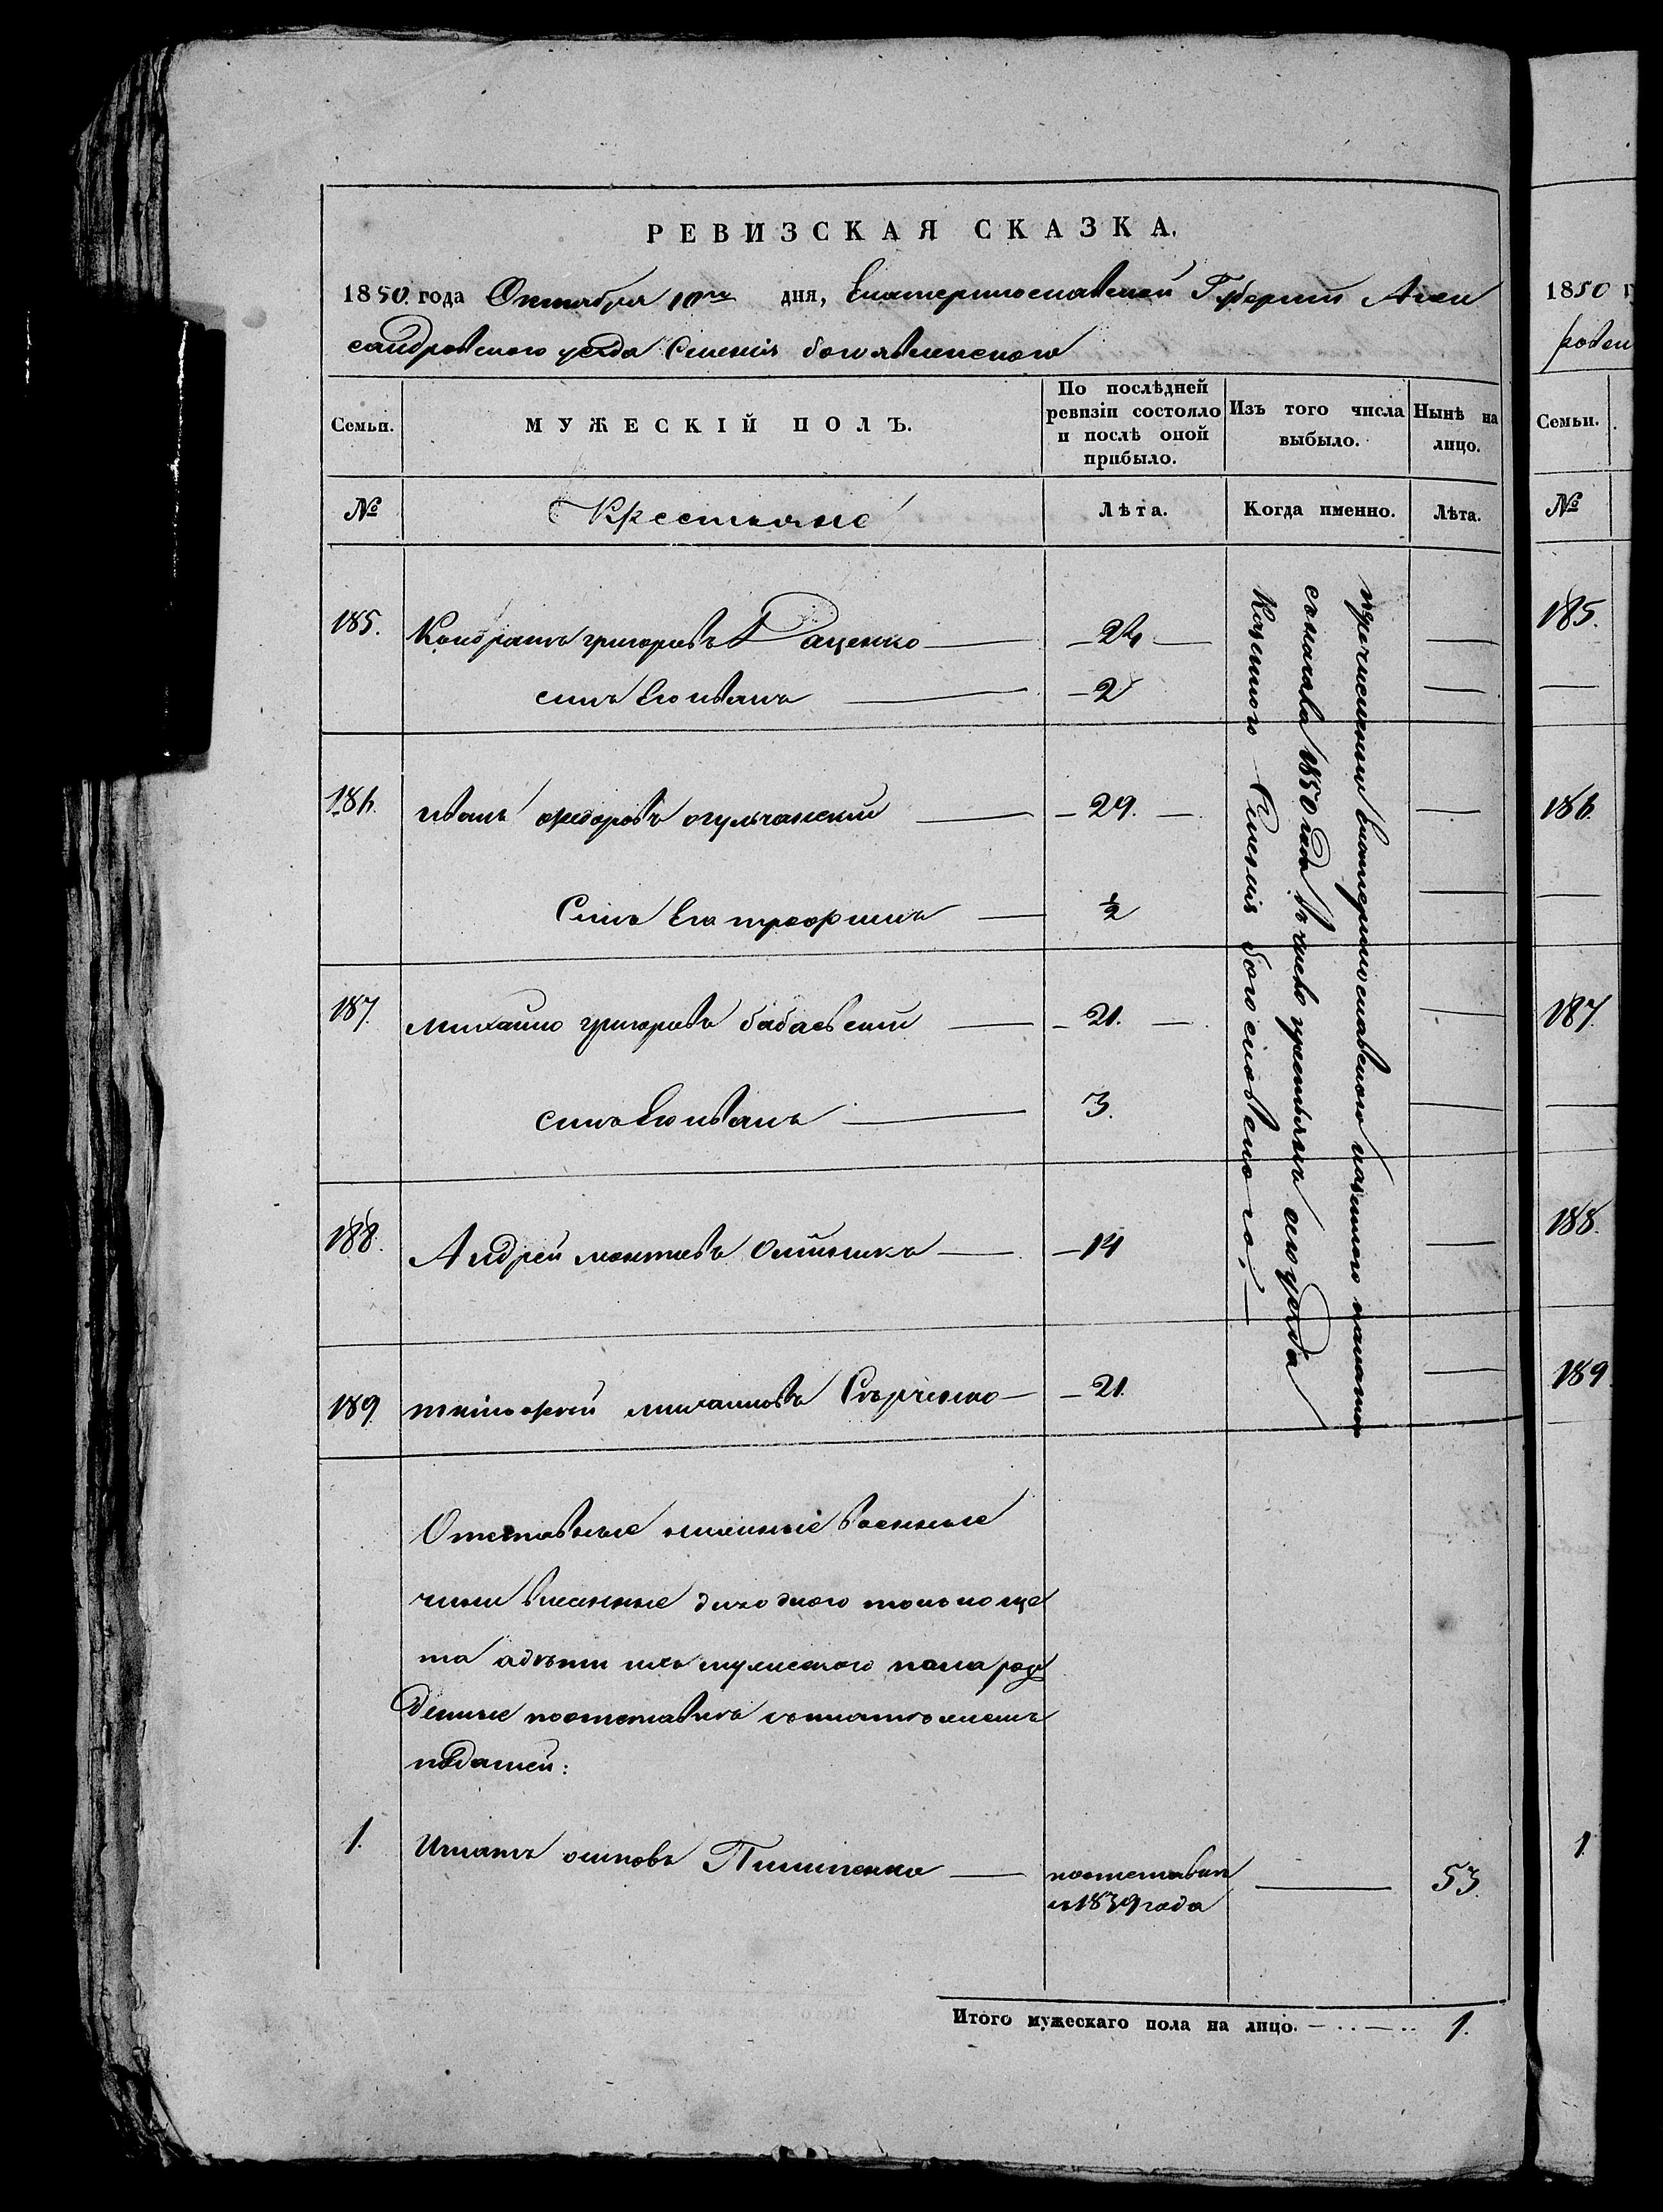 РЕВИЗСКАЯ СКАЗКА.
1850. года Октября 10го дня, Екатеринославской Губерніи Алек
сандровского уезда Силенія богоявленского
Семьи.
МУЖЕСКІЙ ПОЛЪ.
По послѣдней ревизіи состояло и послѣ оной прибыло.
Изъ того числа выбыло.
Нынѣ на лицо.
№
Крестьяне
Лѣта.
Когда именно.
Лѣта.
185. Кондратъ григоровъ Даценко — 24 —
синъ Его иванъ — 2
186. иванъ федоровъ огульчанский — 29. —
Синъ Его трофимъ — ½
187. михайло григоровъ бабаевский — 21. —
синъ Его иванъ — 3.
188. Андрей Олійникъ — 14
189. тимофей михайловъ — 21.
перечисленни Екатеринославского казенного палатою
сначала 1850 года въ число крестьянъ сего уезда
Казенного Силенія
Отставные нижние военные
чини внесенные для одного только ще
та адѣти ихъ мужеского пола рож
денные поотставке
податей:
1. Игнатъ осиповъ Пилипенко — поотставки
с 1839 года — 53.
Итого мужескаго пола на лицо. — . . — . . 1.
1850 г
ровен
Семьи.
№
185.
186.
187.
188.
189.
1.